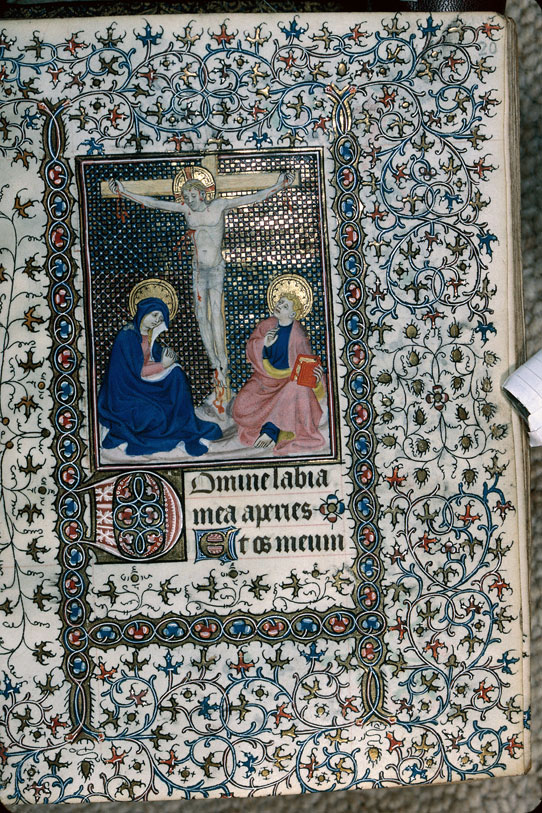 20
Domine labia
mea aperies
Et os meum